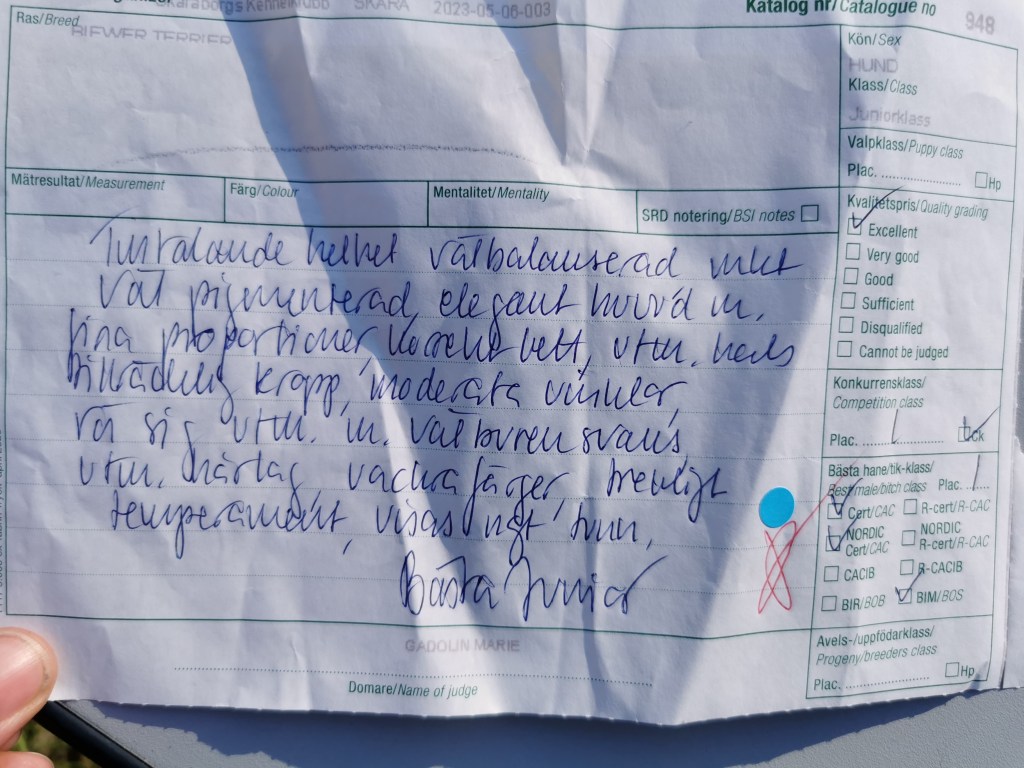 Skaraborgs Kennelklubb SKARA 2023-05-06-003
Katalog nr/Catalogue no 948
Ras/Breed
BIEWER TERRIER
Kön/Sex
HUND
Klass/Class
Juniorklass
Valpklass/Puppy class
Plac. Hp
Mätresultat/Measurement Färg/Colour Mentalitet/Mentality SRD notering/BSI notes
Kvalitetspris/Quality grading
Excellent
Very good
Good
Sufficient
Disqualified
Cannot be judged
Tilltalande helhet välbalanserad
väl pigmenterad, elegant huvud m.
fina proportioner, korrekt bett, utm. hals
tillräcklig kropp, moderata vinklar,
rör sig utm. m. välburen svans,
utm. hårlag, vackra färger, trevligt
temperament, visas ngt tunn,
Bästa Junior
Konkurrensklass/
Competition class
Plac. 1 ck
Bästa hane/tik-klass/
Best male/bitch class Plac. 1
Cert/CAC R-cert/R-CAC
NORDIC Cert/CAC NORDIC R-cert/R-CAC
CACIB R-CACIB
BIR/BOB BIM/BOS
GADOLIN MARIE
Domare/Name of judge
Avels-/uppfödarklass/
Progeny/breeders class
Plac. Hp